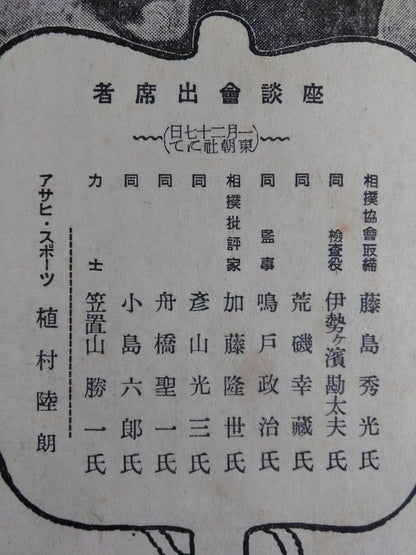 座談會出席者
一月二十七日
東朝社にて
相撲協會取締 藤島秀光氏
同 檢査役 伊勢ヶ濱勘太夫氏
同 荒磯幸藏氏
同 監事 鳴戸政治氏
相撲批評家 加藤隆世氏
同 彥山光三氏
同 舟橋聖一氏
同 小島六郎氏
力士 笠置山勝一氏
アサヒ・スポーツ 植村陸朗